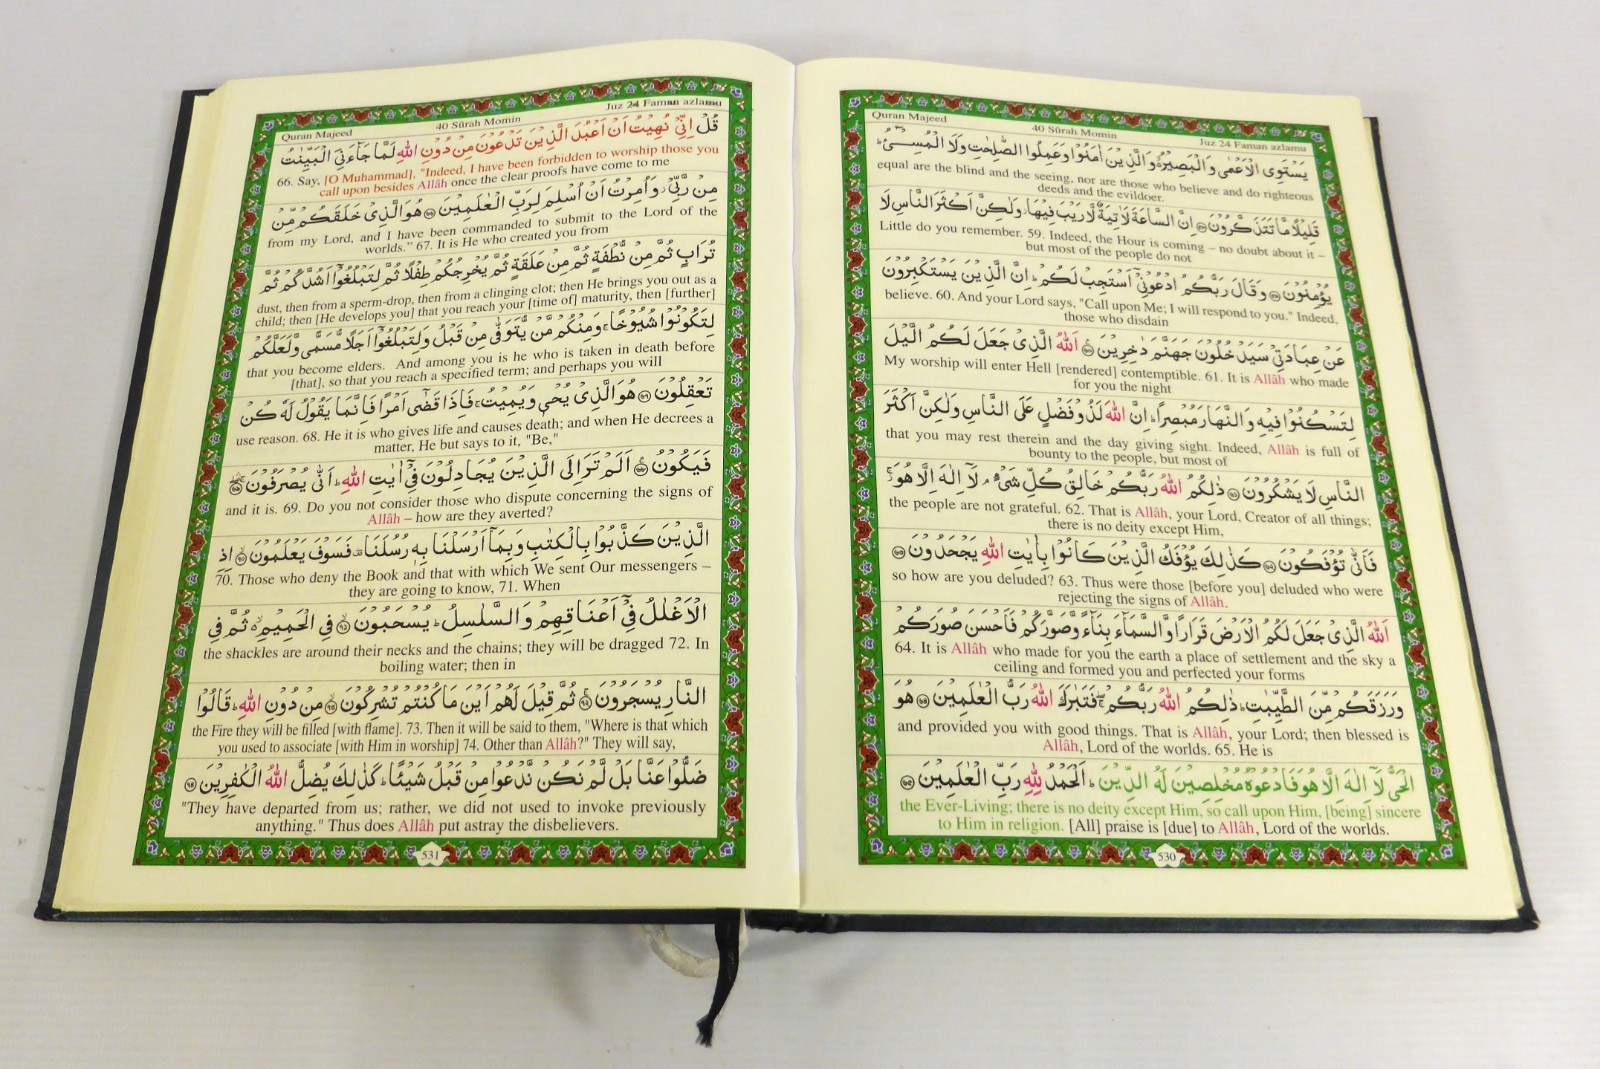 Quran Majeed
40 Sūrah Momin
Juz 24 Faman azlamu
يَسْتَوِى الْاَعْمٰى وَالْبَصِيْرُ وَالَّذِيْنَ اٰمَنُوْا وَعَمِلُوا الصّٰلِحٰتِ وَلَا الْمُسِىْٓءُ
equal are the blind and the seeing, nor are those who believe and do righteous
deeds and the evildoer.
قَلِيْلًا مَّا تَتَذَكَّرُوْنَ ۝۵۸ اِنَّ السَّاعَةَ لَاٰتِيَةٌ لَّا رَيْبَ فِيْهَا وَلٰكِنَّ اَكْثَرَ النَّاسِ لَا
Little do you remember. 59. Indeed, the Hour is coming – no doubt about it –
but most of the people do not
يُؤْمِنُوْنَ ۝۵۹ وَقَالَ رَبُّكُمُ ادْعُوْنِىْٓ اَسْتَجِبْ لَكُمْ اِنَّ الَّذِيْنَ يَسْتَكْبِرُوْنَ
believe. 60. And your Lord says, "Call upon Me; I will respond to you." Indeed,
those who disdain
عَنْ عِبَادَتِىْ سَيَدْخُلُوْنَ جَهَنَّمَ دٰخِرِيْنَ ۝۶۰ اَللّٰهُ الَّذِىْ جَعَلَ لَكُمُ الَّيْلَ
My worship will enter Hell [rendered] contemptible. 61. It is Allâh who made
for you the night
لِتَسْكُنُوْا فِيْهِ وَالنَّهَارَ مُبْصِرًا اِنَّ اللّٰهَ لَذُوْ فَضْلٍ عَلَى النَّاسِ وَلٰكِنَّ اَكْثَرَ
that you may rest therein and the day giving sight. Indeed, Allâh is full of
bounty to the people, but most of
النَّاسِ لَا يَشْكُرُوْنَ ۝۶۱ ذٰلِكُمُ اللّٰهُ رَبُّكُمْ خَالِقُ كُلِّ شَىْءٍ لَآ اِلٰهَ اِلَّا هُوَ
the people are not grateful. 62. That is Allâh, your Lord, Creator of all things;
there is no deity except Him,
فَاَنّٰى تُؤْفَكُوْنَ ۝۶۲ كَذٰلِكَ يُؤْفَكُ الَّذِيْنَ كَانُوْا بِاٰيٰتِ اللّٰهِ يَجْحَدُوْنَ ۝۶۳
so how are you deluded? 63. Thus were those [before you] deluded who were
rejecting the signs of Allâh.
اَللّٰهُ الَّذِىْ جَعَلَ لَكُمُ الْاَرْضَ قَرَارًا وَّالسَّمَآءَ بِنَآءً وَّصَوَّرَكُمْ فَاَحْسَنَ صُوَرَكُمْ
64. It is Allâh who made for you the earth a place of settlement and the sky a
ceiling and formed you and perfected your forms
وَرَزَقَكُمْ مِّنَ الطَّيِّبٰتِ ذٰلِكُمُ اللّٰهُ رَبُّكُمْ فَتَبٰرَكَ اللّٰهُ رَبُّ الْعٰلَمِيْنَ ۝۶۴ هُوَ
and provided you with good things. That is Allâh, your Lord; then blessed is
Allâh, Lord of the worlds. 65. He is
الْحَىُّ لَآ اِلٰهَ اِلَّا هُوَ فَادْعُوْهُ مُخْلِصِيْنَ لَهُ الدِّيْنَ اَلْحَمْدُ لِلّٰهِ رَبِّ الْعٰلَمِيْنَ ۝۶۵
the Ever-Living; there is no deity except Him, so call upon Him, [being] sincere
to Him in religion. [All] praise is [due] to Allâh, Lord of the worlds.
530
Quran Majeed
40 Sūrah Momin
Juz 24 Faman azlamu
قُلْ اِنِّىْ نُهِيْتُ اَنْ اَعْبُدَ الَّذِيْنَ تَدْعُوْنَ مِنْ دُوْنِ اللّٰهِ لَمَّا جَآءَنِىَ الْبَيِّنٰتُ
66. Say, [O Muhammad], "Indeed, I have been forbidden to worship those you
call upon besides Allâh once the clear proofs have come to me
مِنْ رَّبِّىْ وَاُمِرْتُ اَنْ اُسْلِمَ لِرَبِّ الْعٰلَمِيْنَ ۝۶۶ هُوَ الَّذِىْ خَلَقَكُمْ مِّنْ
from my Lord, and I have been commanded to submit to the Lord of the
worlds." 67. It is He who created you from
تُرَابٍ ثُمَّ مِنْ نُّطْفَةٍ ثُمَّ مِنْ عَلَقَةٍ ثُمَّ يُخْرِجُكُمْ طِفْلًا ثُمَّ لِتَبْلُغُوْٓا اَشُدَّكُمْ ثُمَّ
dust, then from a sperm-drop, then from a clinging clot; then He brings you out as a
child; then [He develops you] that you reach your [time of] maturity, then [further]
لِتَكُوْنُوْا شُيُوْخًا وَمِنْكُمْ مَّنْ يُّتَوَفّٰى مِنْ قَبْلُ وَلِتَبْلُغُوْٓا اَجَلًا مُّسَمًّى وَّلَعَلَّكُمْ
that you become elders. And among you is he who is taken in death before
[that], so that you reach a specified term; and perhaps you will
تَعْقِلُوْنَ ۝۶۷ هُوَ الَّذِىْ يُحْىٖ وَيُمِيْتُ فَاِذَا قَضٰٓى اَمْرًا فَاِنَّمَا يَقُوْلُ لَهٗ كُنْ
use reason. 68. He it is who gives life and causes death; and when He decrees a
matter, He but says to it, "Be,"
فَيَكُوْنُ ۝۶۸ اَلَمْ تَرَ اِلَى الَّذِيْنَ يُجَادِلُوْنَ فِىْٓ اٰيٰتِ اللّٰهِ اَنّٰى يُصْرَفُوْنَ ۝۶۹
and it is. 69. Do you not consider those who dispute concerning the signs of
Allâh – how are they averted?
الَّذِيْنَ كَذَّبُوْا بِالْكِتٰبِ وَبِمَآ اَرْسَلْنَا بِهٖ رُسُلَنَا فَسَوْفَ يَعْلَمُوْنَ ۝۷۰ اِذِ
70. Those who deny the Book and that with which We sent Our messengers –
they are going to know, 71. When
الْاَغْلٰلُ فِىْٓ اَعْنَاقِهِمْ وَالسَّلٰسِلُ يُسْحَبُوْنَ ۝۷۱ فِى الْحَمِيْمِ ثُمَّ فِى
the shackles are around their necks and the chains; they will be dragged 72. In
boiling water; then in
النَّارِ يُسْجَرُوْنَ ۝۷۲ ثُمَّ قِيْلَ لَهُمْ اَيْنَ مَا كُنْتُمْ تُشْرِكُوْنَ ۝۷۳ مِنْ دُوْنِ اللّٰهِ قَالُوْا
the Fire they will be filled [with flame]. 73. Then it will be said to them, "Where is that which
you used to associate [with Him in worship] 74. Other than Allâh?" They will say,
ضَلُّوْا عَنَّا بَلْ لَّمْ نَكُنْ نَّدْعُوْا مِنْ قَبْلُ شَيْئًا كَذٰلِكَ يُضِلُّ اللّٰهُ الْكٰفِرِيْنَ ۝۷۴
"They have departed from us; rather, we did not used to invoke previously
anything." Thus does Allâh put astray the disbelievers.
531